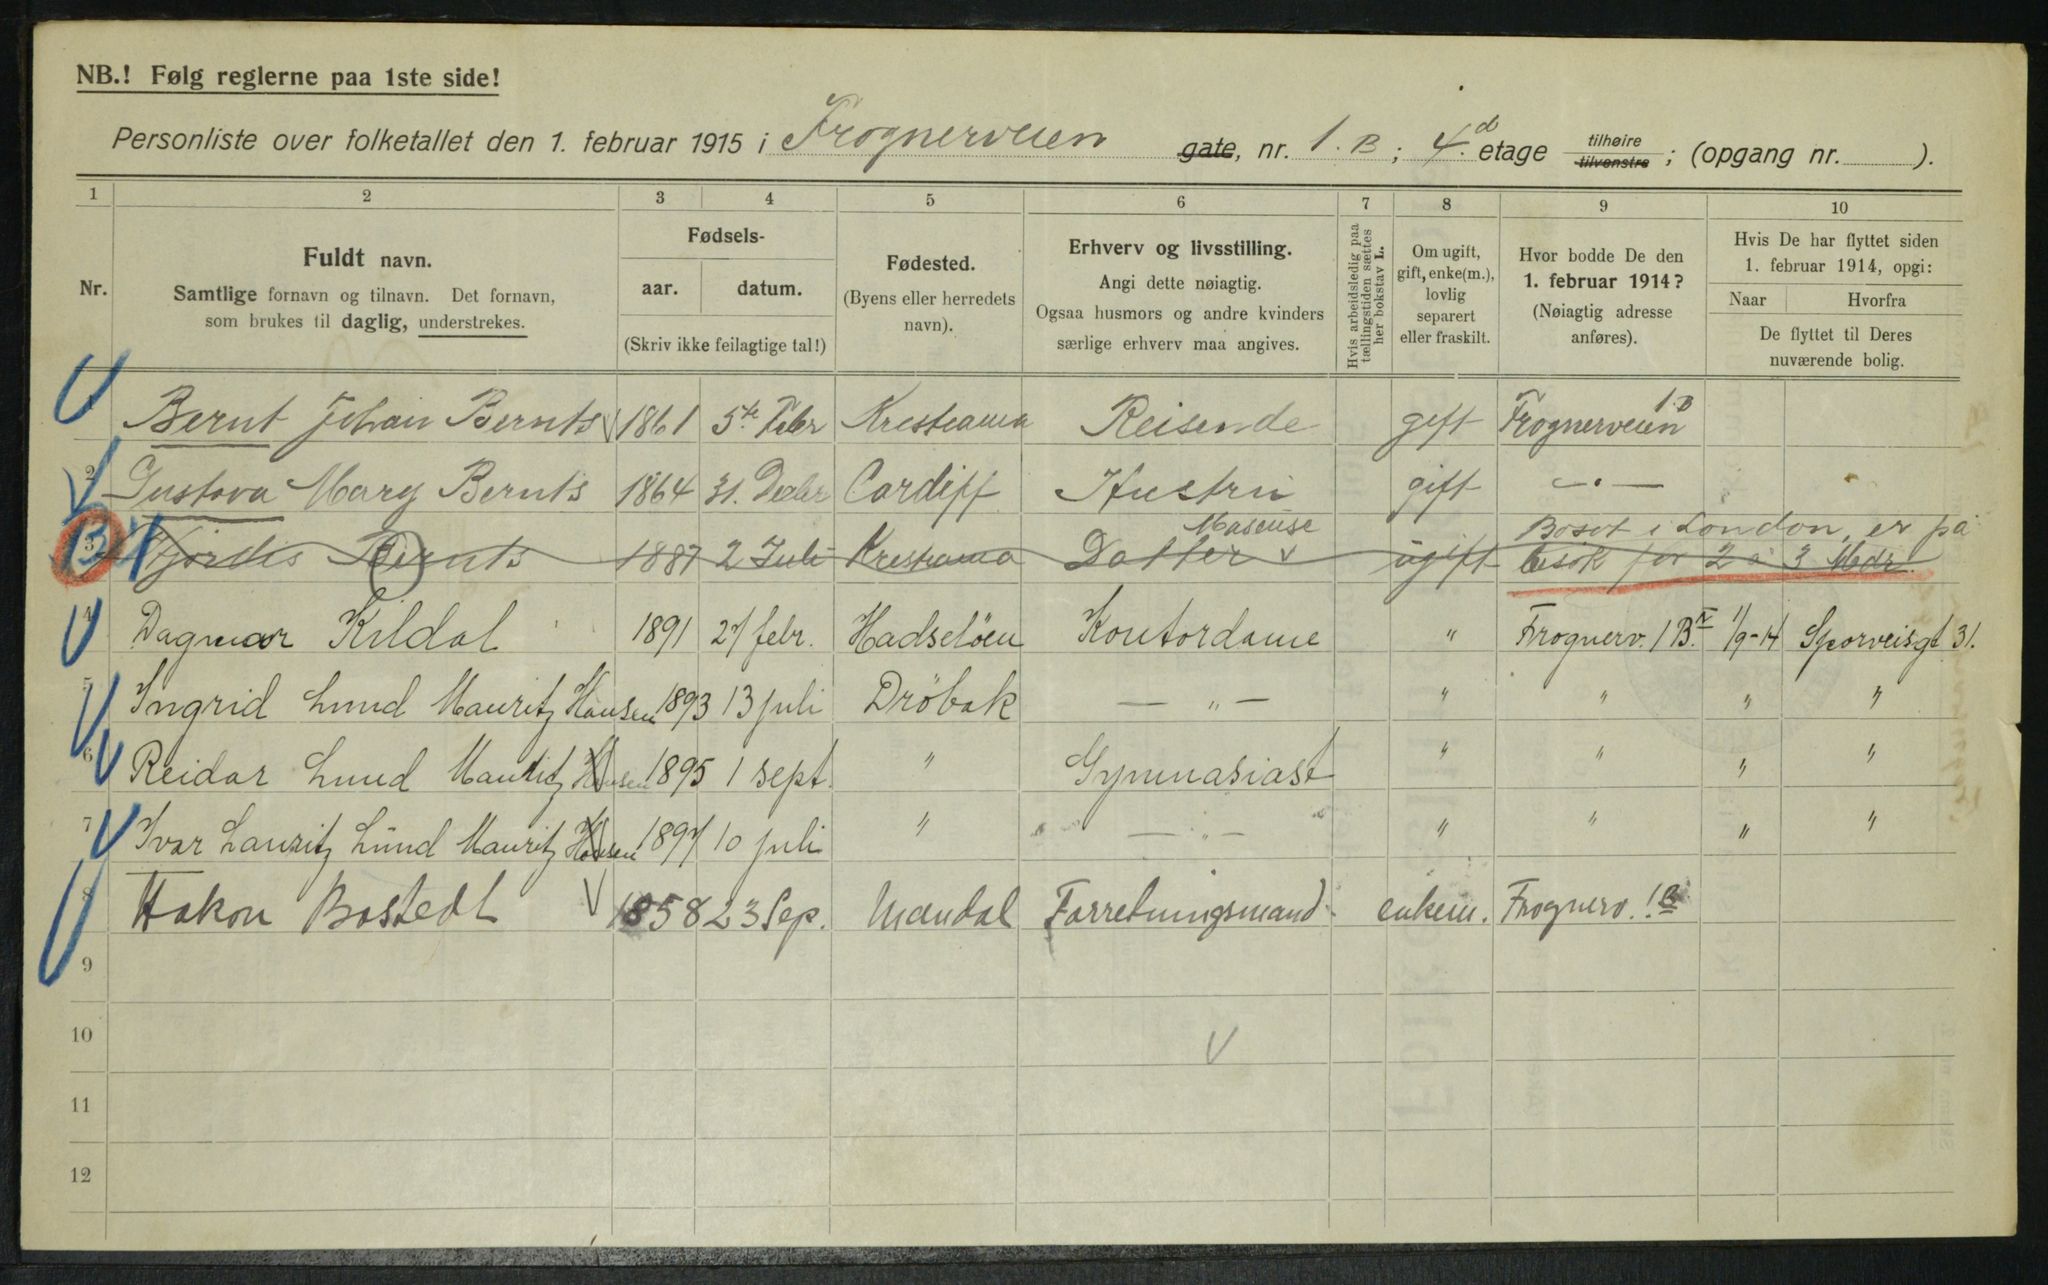 NB.! Følg reglerne paa 1ste side!
Personliste over folketallet den 1. februar 1915 i Frognerveien gate, nr. 1.B; 4.d etage tilhøire tilvenstre; (opgang nr. ).
1 2 3 4 5 6 7 8 9 10
Nr.
Fuldt navn.
Samtlige fornavn og tilnavn. Det fornavn,
som brukes til daglig, understrekes.
Fødsels-
aar. datum.
(Skriv ikke feilagtige tal!)
Fødested.
(Byens eller herredets
navn).
Erhverv og livsstilling.
Angi dette nøiagtig.
Ogsaa husmors og andre kvinders
særlige erhverv maa angives.
Hvis arbeidsledig paa
tællingstiden sættes
her bokstav L.
Om ugift,
gift, enke(m.),
lovlig
separert
eller fraskilt.
Hvor bodde De den
1. februar 1914?
(Nøiagtig adresse
anføres).
Hvis De har flyttet siden
1. februar 1914, opgi:
Naar Hvorfra
De flyttet til Deres
nuværende bolig.
Bernt Johan Bernts 1861 5te Febr Kristiania Reisende gift Frognerveien 1.B
2 Gustava Mary Bernts 1864 31. Decbr Cardiff Hustru gift — . —
3 Hjördis Bernts 1887 2 Juli Kristiania Datter Maseuse ugift Bosat i London, er på
besök for 2 à 3 Mdr.
4 Dagmar Kildal 1891 27 febr. Hadselöen Kontordame " Frognerv. 1 B IV 1/9-14 Sporveisgt 31.
5 Ingrid Lund Mauritz Hansen 1893 13 juli Dröbak — " — " " " "
6 Reidar Lund Mauritz Hansen 1895 1 sept. " Gymnasiast " " " "
7 Ivar Lauritz Lund Mauritz Hansen 1897 10 juli " — " — " " " "
8 Hakon Bostedt 1858 23 Sep. Mandal Forretningsmand enkem. Frognerv. 1B
9
10
11
12